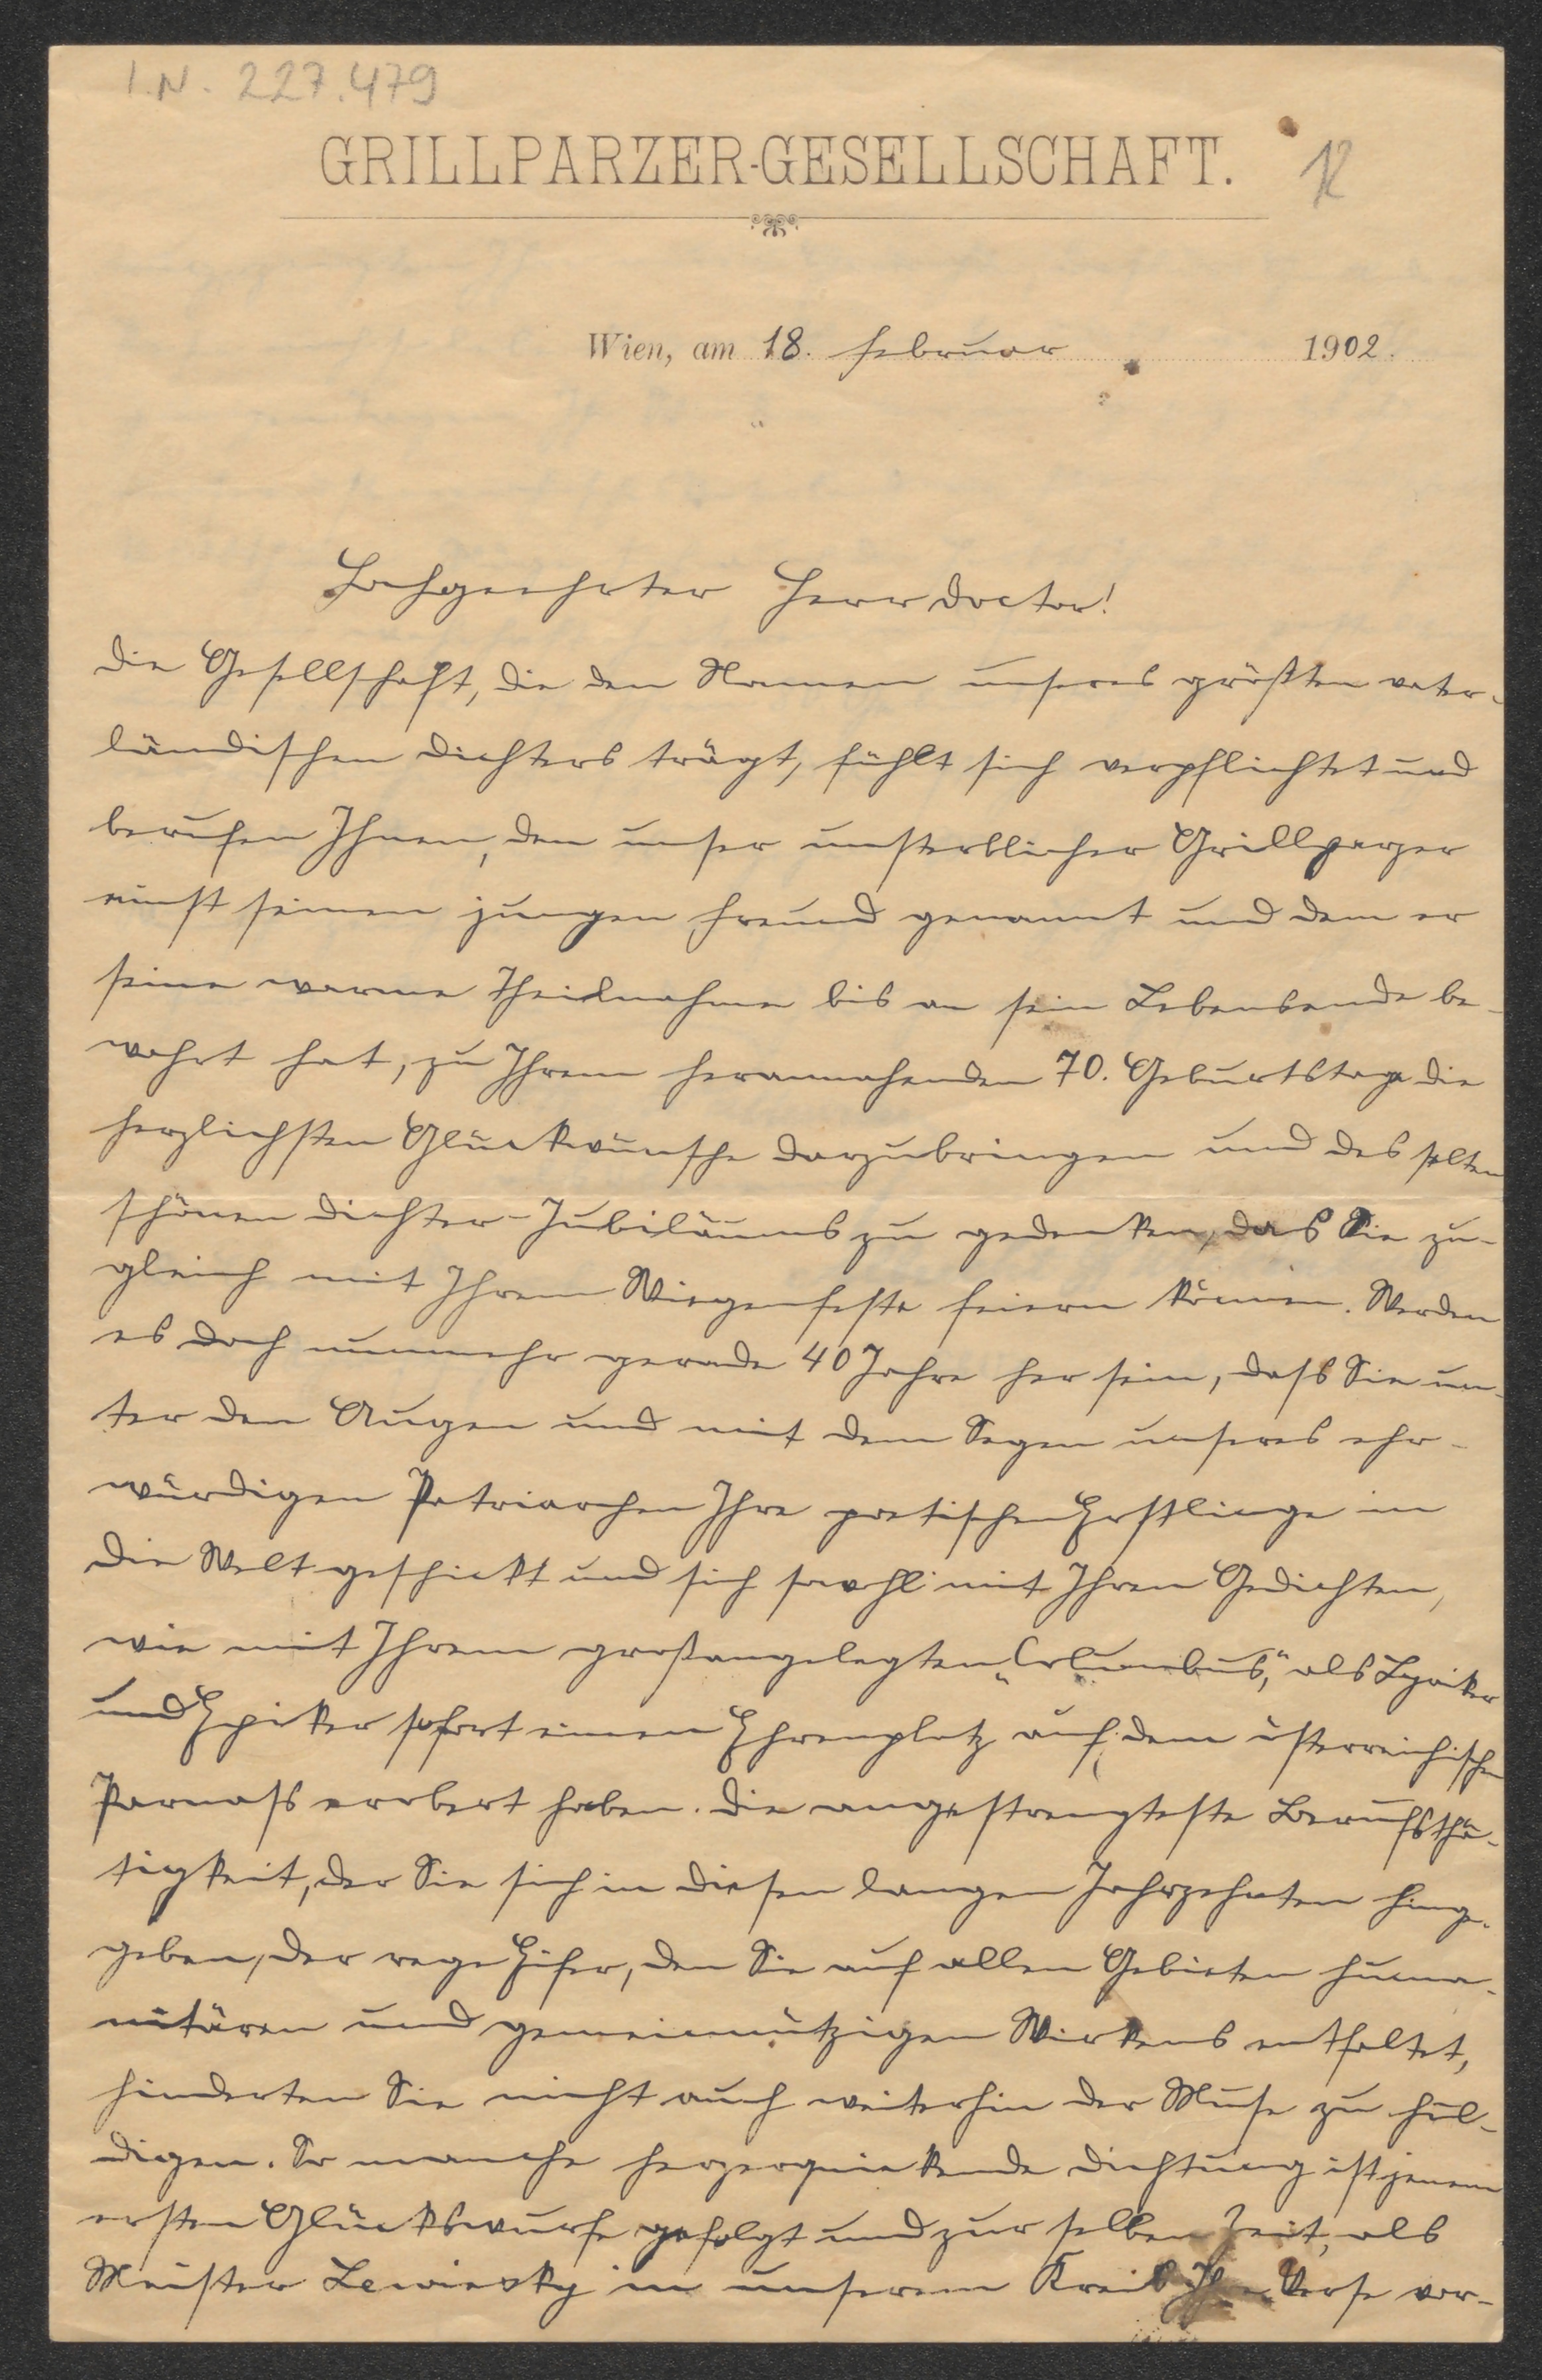 I.N. 227.479
GRILLPARZER-GESELLSCHAFT.
12
Wien, am 18. Februar 1902.
Hochgeehrter Herr Doctor!
Die Gesellschaft, die den Namen unseres größten vater-
ländischen Dichters trägt, fühlt sich verpflichtet und
berufen Ihnen, den unser unsterblicher Grillparzer
einst seinen jungen Freund genannt und dem er
seine warme Theilnahme bis an sein Lebensende be-
wahrt hat, zu Ihrem herannahenden 70. Geburtstage die
herzlichsten Glückwünsche darzubringen und des selten
schönen Dichter-Jubiläums zu gedenken, das Sie zu-
gleich mit Ihrem Wiegenfeste feiern können. Werden
es doch nunmehr gerade 40 Jahre her sein, dass Sie un-
ter den Augen und mit dem Segen unseres ehr-
würdigen Patriarchen Ihre poetischen Erstlinge in
die Welt geschickt und sich sowohl mit Ihren Gedichten,
wie mit Ihrem großangelegten „Columbus“, als Lyriker
und Epiker sofort einen Ehrenplatz auf dem österreichischen
Parnass erobert haben. Die angestrengteste Berufsthä-
tigkeit, der Sie sich in diesen langen Jahrzehnten hinge-
geben, der rege Eifer, den Sie auf allen Gebieten huma-
nitären und gemeinnützigen Wirkens entfaltet,
hinderten Sie nicht auch weiterhin der Muse zu hul-
digen. So manche herzerquickende Dichtung ist jenem
ersten Glückswurfe gefolgt und zur selben Zeit, als
Meister Lewinsky in unserem Kreis Ihre Verse vor-